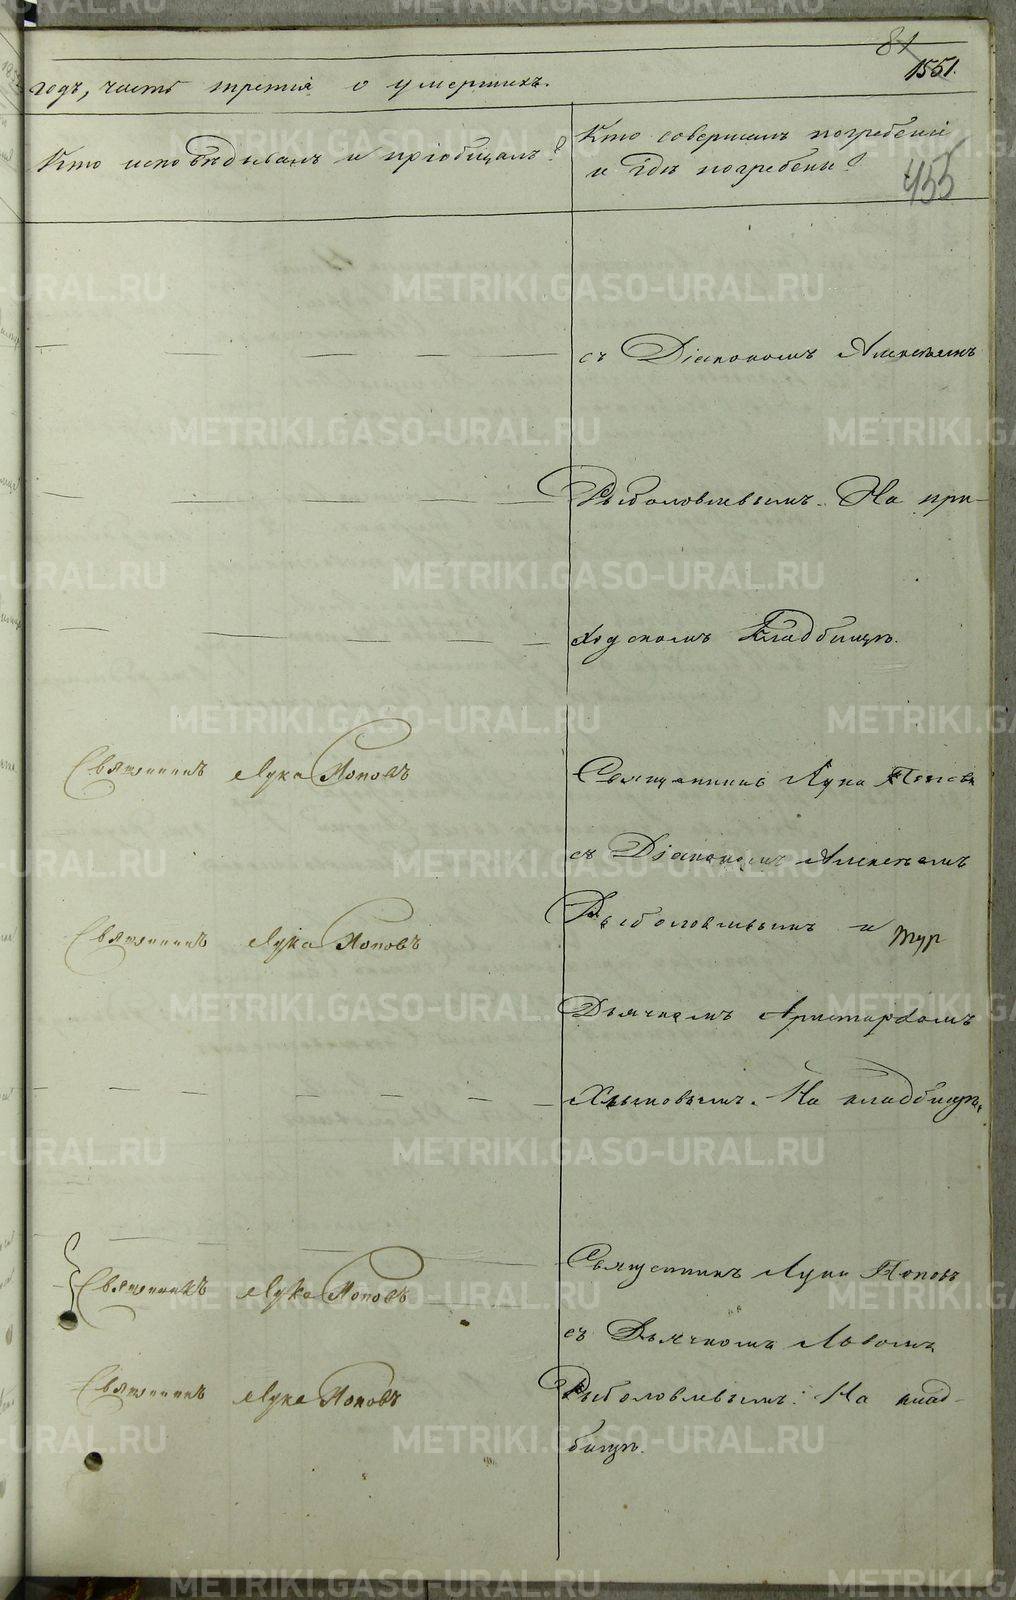 81
1551.
годъ, часть третія о умершихъ.
Кто исповѣдывалъ и пріобщалъ?
Кто совершалъ погребеніе
и гдѣ погребены?
455
съ Діакономъ Алексѣемъ
Рыболовлевымъ. На при-
ходскомъ кладбищѣ.
Священникъ Лука Поповъ
Священникъ Лука Поповъ
съ Діакономъ Алексѣемъ
Рыболовлевымъ и
Священникъ Лука Поповъ
Дьячкомъ Аристархомъ
На кладбищѣ.
Священникъ Лука Поповъ
Священникъ Лука Поповъ
съ Дьячкомъ
Рыболовлевымъ. На клад-
бищѣ.
Священникъ Лука Поповъ
METRIKI.GASO-URAL.RU